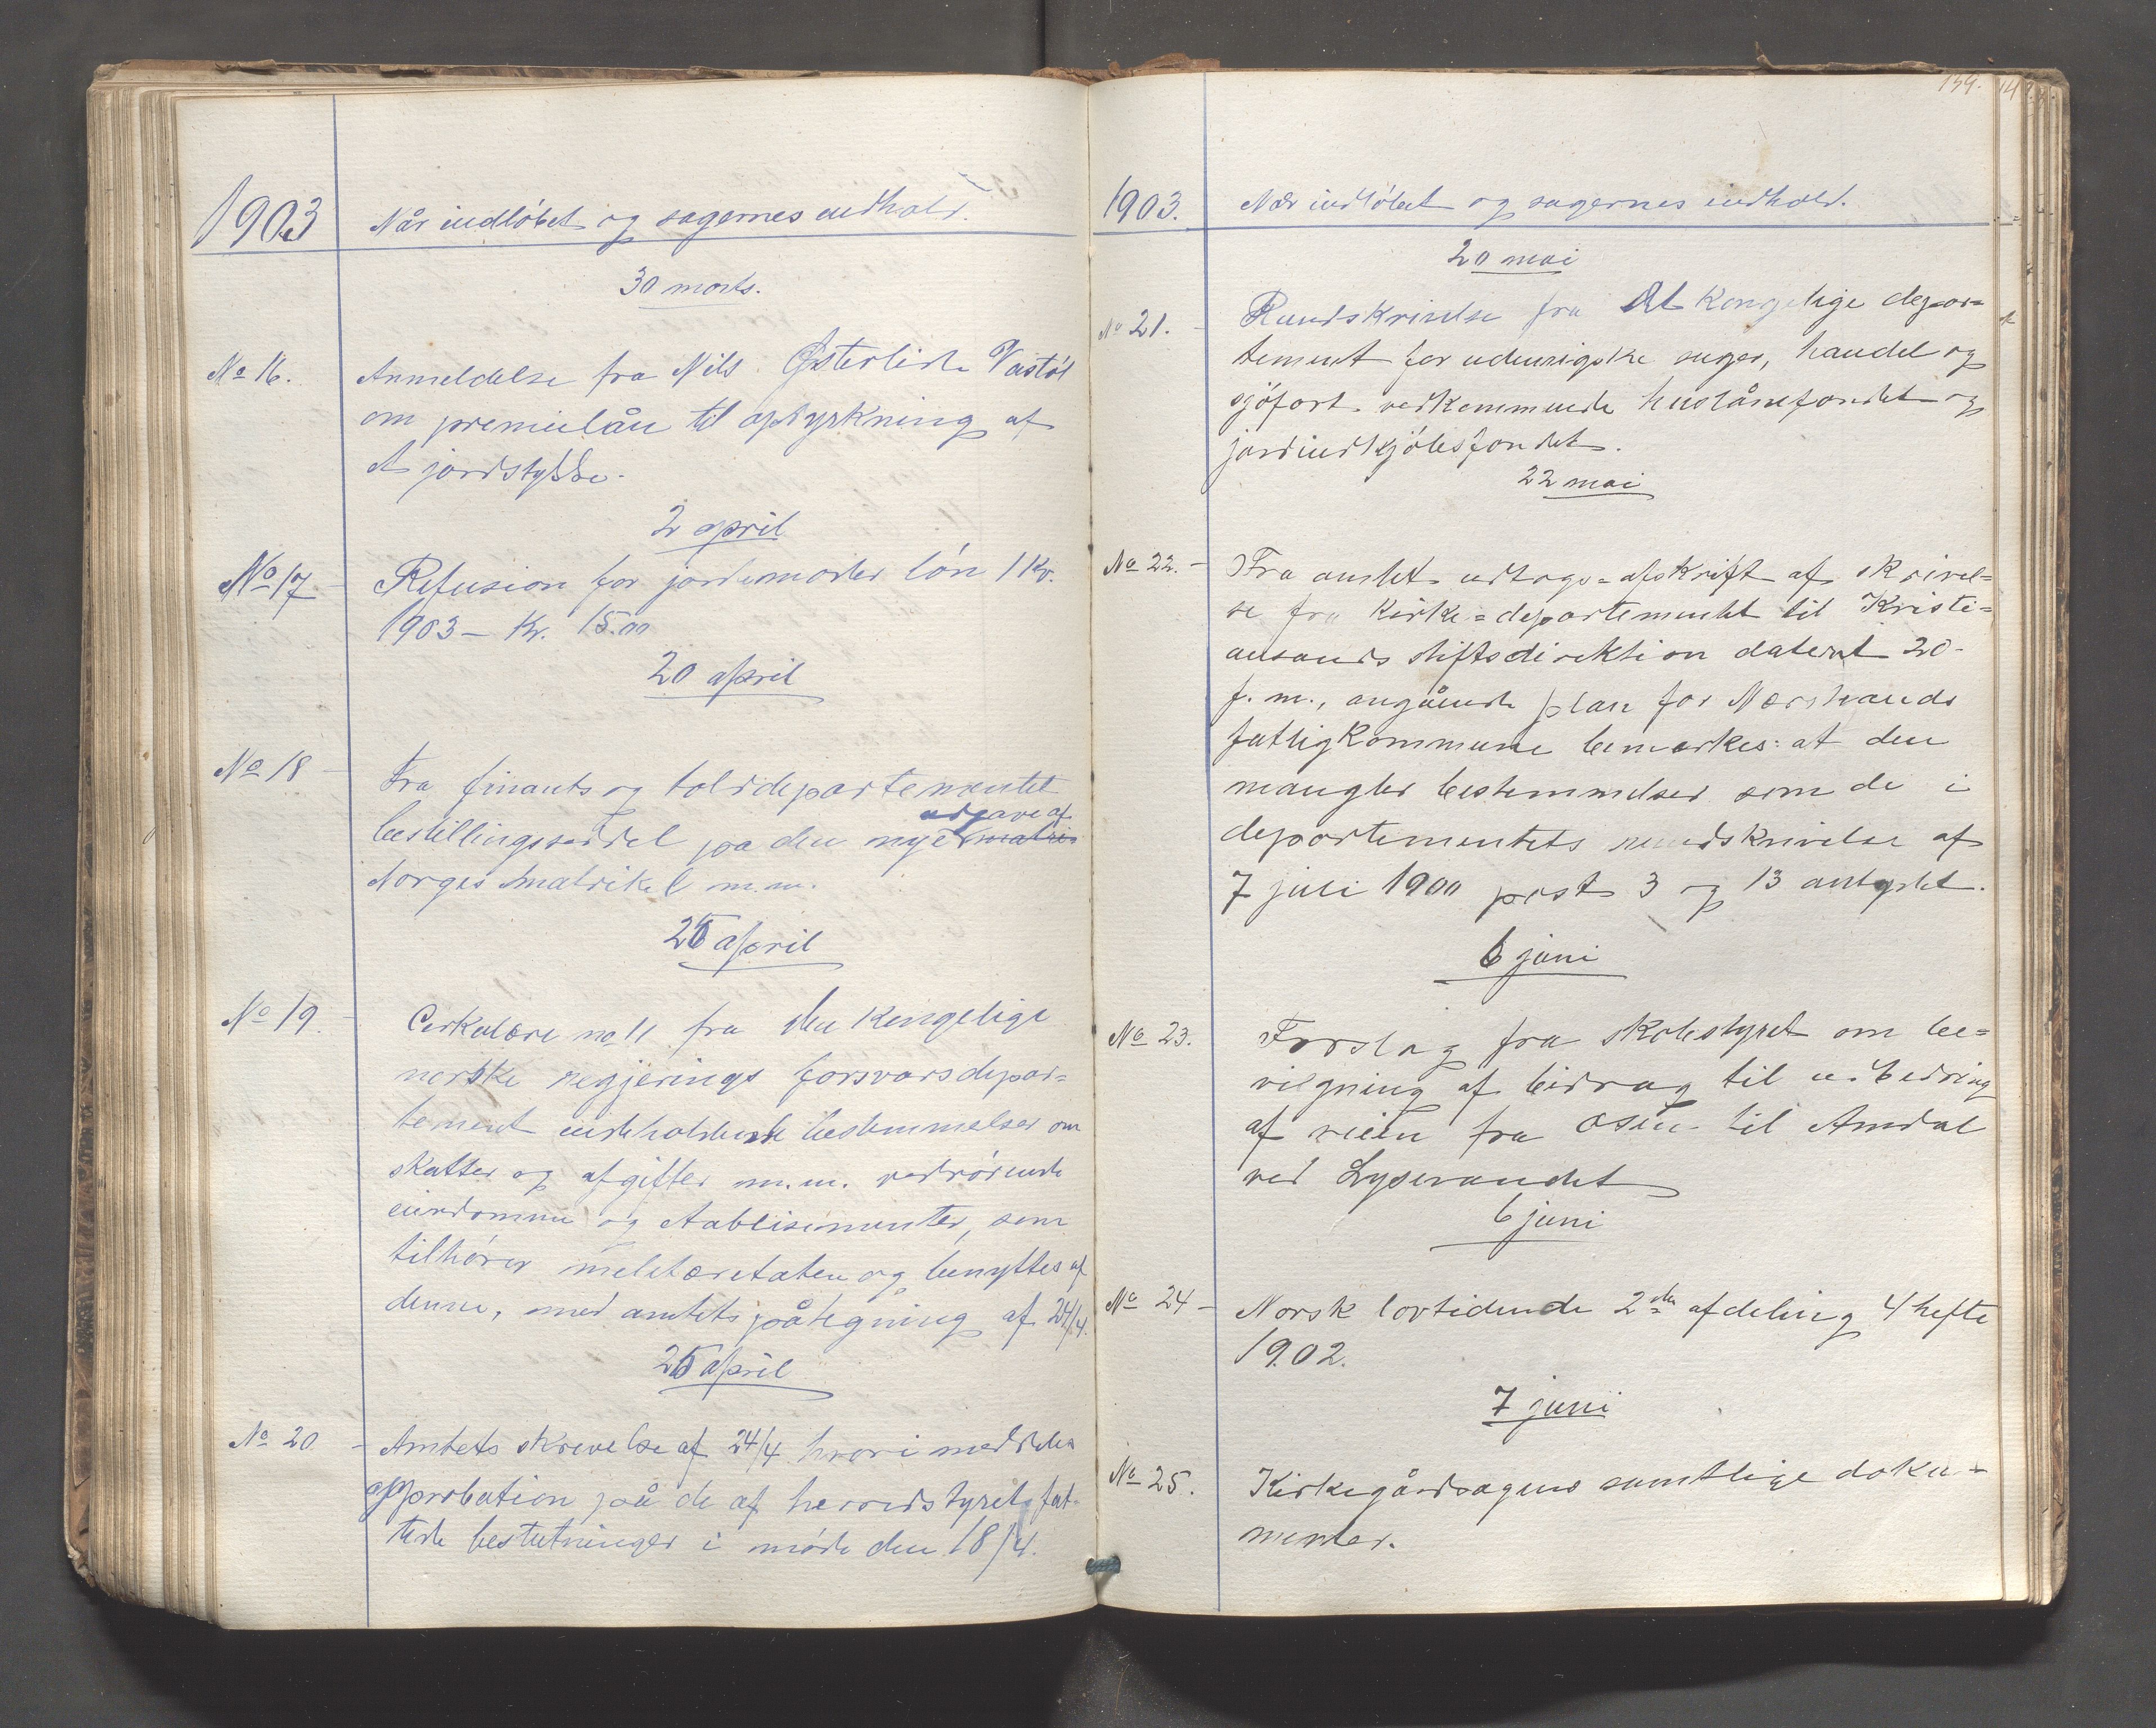 1903
Når indløbet og sagernes indhold.
30 marts.
No 16.
Anmeldelse fra Nils Østerlide Vastøl
om premielån til opdyrkning af
et jordstykke.
2 april
No 17
Refusion for jordemoder løn 1 kv.
1903 - Kr. 15.00
20 april
No 18
Fra finants og tolddepartementet
bestillingsseddel på den nye udgave af
Norges matrikel m.m.
25 april
No 19.
Cirkulære no 11 fra den kongelige
norske regjerings forsvarsdepar=
tement indeholdende bestemmelser om
skatter og afgifter m.m. vedrørende
eiendomme og etablisementer, som
tilhører militæretaten og benyttes af
denne, med amtets påtegning af 24/4.
25 april
No 20
Amtets skrivelse af 24/4 hvori meddeles
approbation på de af herredstyret fat-
tede beslutninger i møde den 18/4.
139.
1903.
Når indløbet og sagernes indhold.
20 mai
No 21.
Rundskrivelse fra Det Kongelige depar=
tement for udenrigske sager, handel og
sjøfart vedkommende huslånefondet og
jordindkjøbsfondet.
22 mai
No 22.
Fra amtet udtogs=afskrift af skrivel=
se fra Kirke=departementet til Kristi=
ansands stiftsdirektion dateret 20-
f. m., angående plan for Nærstrands
fattigkommune bemærkes: at den
mangler bestemmelser som de i
departementets rundskrivelse af
7 juli 1900 post 3 og 13 antydet.
6 juni
No 23.
Forslag fra skolestyret om be=
vilgning af bidrag til udbedring
af veien fra Osen til Amdal
ved Lysevandet
6 juni
No 24
Norsk lovtidende 2den afdeling 4 hefte
1902.
7 juni
No 25.
Kirkegårdsagens samtlige doku-
menter.